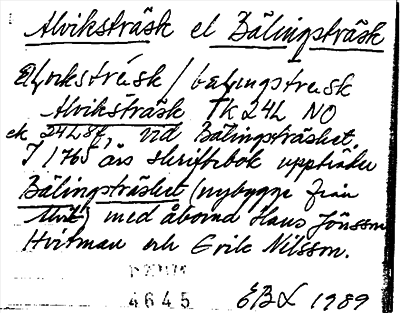 Alviksträsk el Bälingsträsk
Alviksträsk TK 24L NO
ek 24L8f, vid Bälingsträsket.
I 1765 års skriftebok uppträder
Bälingsträsket (nybygge från
Alvik) med åborna Hans Jönsson
Hvitman och Erik Nilsson.
4645 EBL 1989